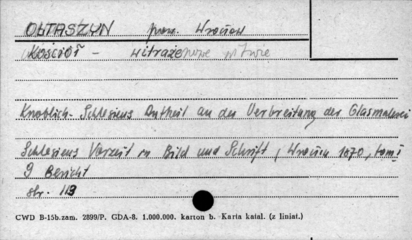 OŁTASZYN pow. Wrocław
Kościół - witraże
Knoblich. Schlesiens Antheil an der Verbreitung der Glasmalerei
Schlesiens Vorzeit in Bild und Schrift, Wrocław 1870, tom I
9 Bericht
str. 113
CWD B-15b.zam. 2899/P. GDA-8. 1.000.000. karton b. Karta katal. (z liniat.)